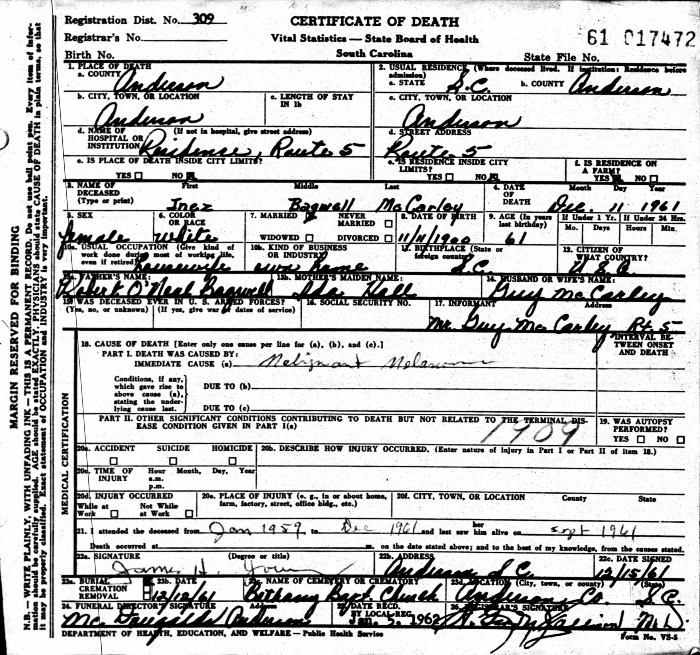 Registration Dist. No. 309
CERTIFICATE OF DEATH
Registrar's No.
Vital Statistics — State Board of Health
61 017472
Birth No.
South Carolina
State File No.
1. PLACE OF DEATH
a. COUNTY Anderson
2. USUAL RESIDENCE (Where deceased lived. If institution: Residence before admission)
a. STATE S.C. b. COUNTY Anderson
b. CITY, TOWN, OR LOCATION Anderson
c. LENGTH OF STAY IN 1b
c. CITY, TOWN, OR LOCATION Anderson
d. NAME OF HOSPITAL OR INSTITUTION (If not in hospital, give street address) Residence, Route 5
d. STREET ADDRESS Route 5
e. IS PLACE OF DEATH INSIDE CITY LIMITS? YES NO
e. IS RESIDENCE INSIDE CITY LIMITS? YES NO
f. IS RESIDENCE ON A FARM? YES NO
3. NAME OF DECEASED (Type or print)
First Middle Last
Inez Bagwell McCarley
4. DATE OF DEATH Dec. 11 1961
5. SEX female
6. COLOR OR RACE white
7. MARRIED NEVER MARRIED WIDOWED DIVORCED
8. DATE OF BIRTH 11/11/1900
9. AGE (In years last birthday) 61
If Under 1 Yr. If Under 24 Hrs.
Mo. Days Hours Min.
10a. USUAL OCCUPATION (Give kind of work done during most of working life, even if retired) housewife
10b. KIND OF BUSINESS OR INDUSTRY own home
11. BIRTHPLACE (State or foreign country) S.C.
12. CITIZEN OF WHAT COUNTRY?
13a. FATHER'S NAME Robert O'Neal Bagwell
13b. MOTHER'S MAIDEN NAME Ida Hall
14. HUSBAND OR WIFE'S NAME: Guy McCarley
15. WAS DECEASED EVER IN U. S. ARMED FORCES? (Yes, no, or unknown) (If yes, give war or dates of service)
16. SOCIAL SECURITY NO.
17. INFORMANT Address
Mr. Guy McCarley Rt. 5
MEDICAL CERTIFICATION
18. CAUSE OF DEATH [Enter only one cause per line for (a), (b), and (c).]
INTERVAL BETWEEN ONSET AND DEATH
PART I. DEATH WAS CAUSED BY:
IMMEDIATE CAUSE (a) Malignant Melanoma
Conditions, if any, which gave rise to above cause (a), stating the underlying cause last.
DUE TO (b)
DUE TO (c)
PART II. OTHER SIGNIFICANT CONDITIONS CONTRIBUTING TO DEATH BUT NOT RELATED TO THE TERMINAL DISEASE CONDITION GIVEN IN PART I(a)
1909
19. WAS AUTOPSY PERFORMED?
YES NO
20a. ACCIDENT SUICIDE HOMICIDE
20b. DESCRIBE HOW INJURY OCCURRED. (Enter nature of injury in Part I or Part II of item 18.)
20c. TIME OF INJURY Hour Month, Day, Year
a.m.
p.m.
20d. INJURY OCCURRED
While at Work Not While at Work
20e. PLACE OF INJURY (e. g., in or about home, farm, factory, street, office bldg., etc.)
20f. CITY, TOWN, OR LOCATION County State
21. I attended the deceased from Jan 1959 to Dec 1961 and last saw her him alive on Sept 1961
Death occurred at m. on the date stated above; and to the best of my knowledge, from the causes stated.
22a. SIGNATURE (Degree or title) James H. Young
22b. ADDRESS Anderson S.C.
22c. SIGNED 12/15/61
23a. BURIAL CREMATION REMOVAL
23b. DATE 12/12/61
23c. NAME OF CEMETERY OR CREMATORY Bethany Bapt. Church
23d. LOCATION (City, town, or county) (State) Anderson Co. S.C.
24. FUNERAL DIRECTOR'S SIGNATURE Address
Anderson
25. DATE RECD. BY LOCAL REG. Jan. 3, 1962
26. REGISTRAR'S SIGNATURE
DEPARTMENT OF HEALTH, EDUCATION, AND WELFARE — Public Health Service
Form No. VS-5
MARGIN RESERVED FOR BINDING
N.B. — WRITE PLAINLY, WITH UNFADING INK — THIS IS A PERMANENT RECORD. Do not use ball point pen. Every item of information should be carefully supplied. AGE should be stated EXACTLY. PHYSICIANS should state CAUSE OF DEATH in plain terms, so that it may be properly classified. Exact statement of OCCUPATION and INDUSTRY is very important.